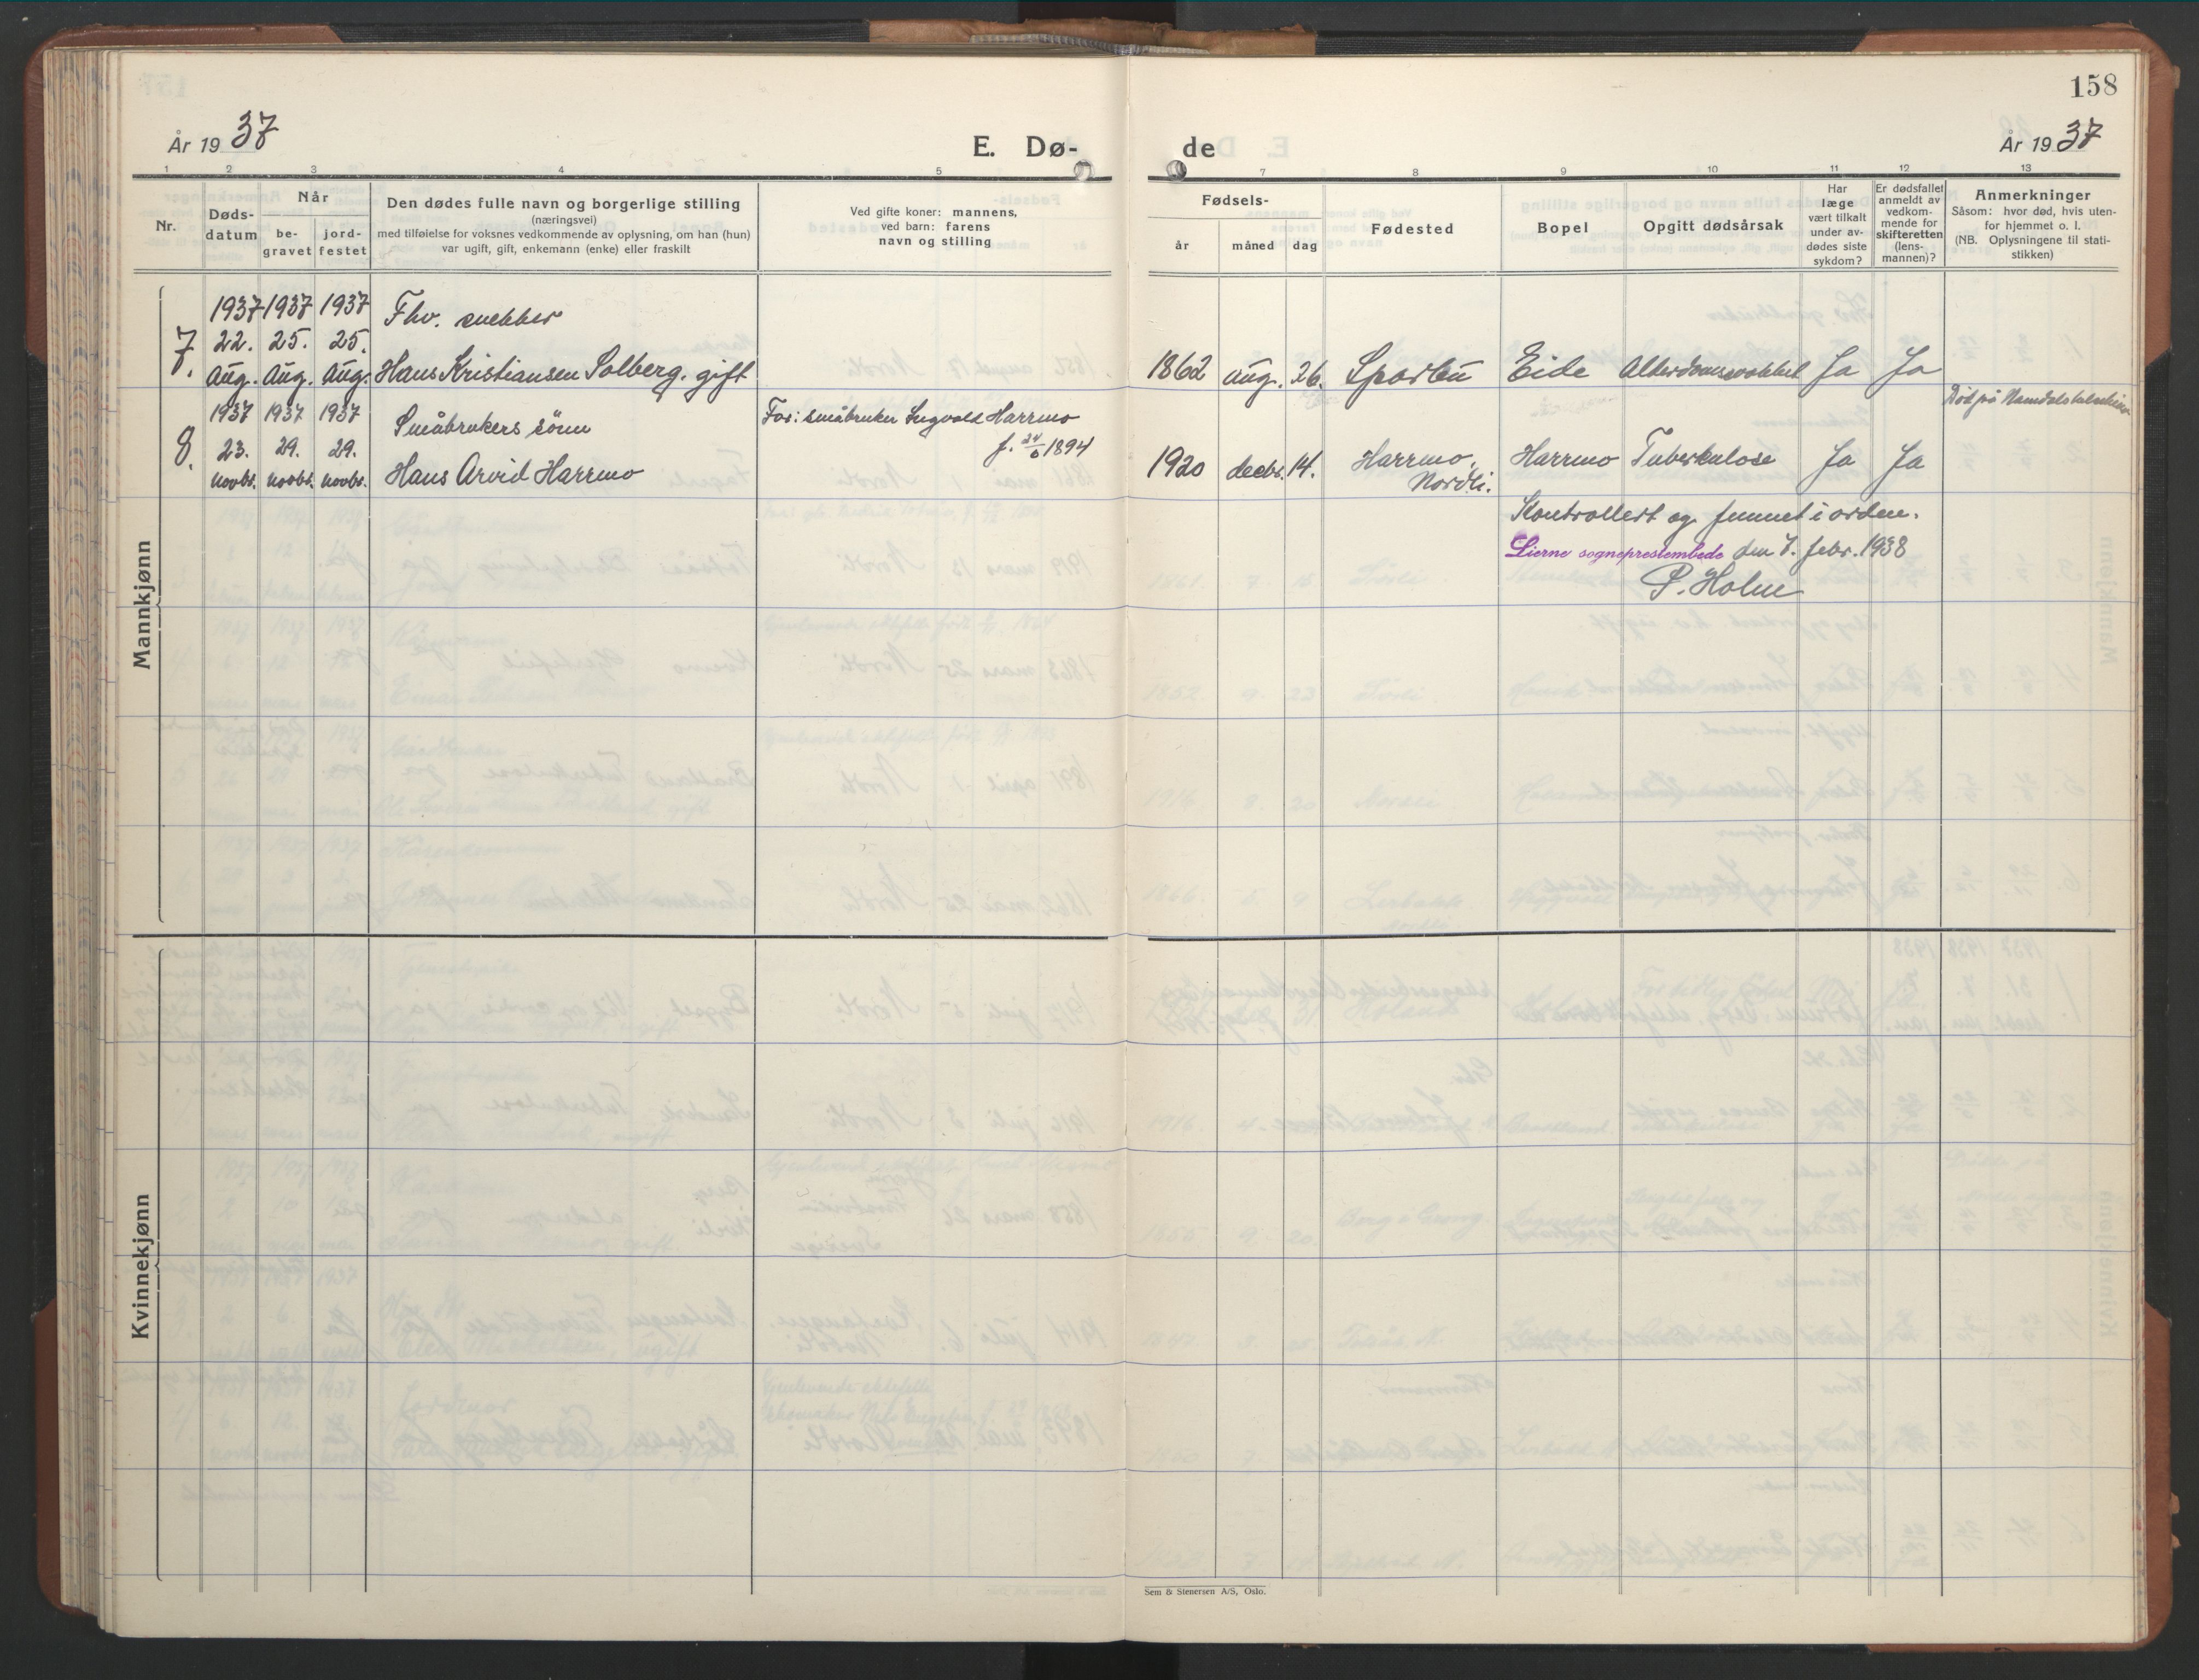 158
År 1937
E. Dø-
de
År 1937
1 2 3 4 5 7 8 9 10 11 12 13
Nr.
Døds-
datum
Når
be-
gravet
jord-
festet
Den dødes fulle navn og borgerlige stilling
(næringsvei)
med tilføielse for voksnes vedkommende av oplysning, om han (hun)
var ugift, gift, enkemann (enke) eller fraskilt
Ved gifte koner: mannens,
ved barn: farens
navn og stilling
Fødsels-
år
måned
dag
Fødested
Bopel
Opgitt dødsårsak
Har
læge
vært tilkalt
under av-
dødes siste
sykdom?
Er dødsfallet
anmeldt av
vedkom-
mende for
skifteretten
(lens-
mannen)?
Anmerkninger
Såsom: hvor død, hvis uten-
for hjemmet o. l.
(NB. Oplysningene til stati-
stikken)
Mannkjønn
1937 1937 1937
Fhv. snekker
7. 22. 25. 25.
aug. aug. aug. Hans Kristiansen Solberg. gift
1862 aug. 26. Sparbu Eide Alderdomssvakhet Ja Ja
1937 1937 1937
Småbrukers sønn
Far: småbruker Ingvald Harrmo
f. 24/6 1894
Død på
8. 23. 29. 29.
novbr. novbr. novbr. Hans Arvid Harrmo
1920 decbr. 14. Harrmo, Harrmo Tuberkulose Ja Ja
Nordli.
Kontrollert og funnet i orden.
Lierne sogneprestembede den 7. febr. 1938
P. Holm
Kvinnekjønn
Sem & Stenersen A/S, Oslo.